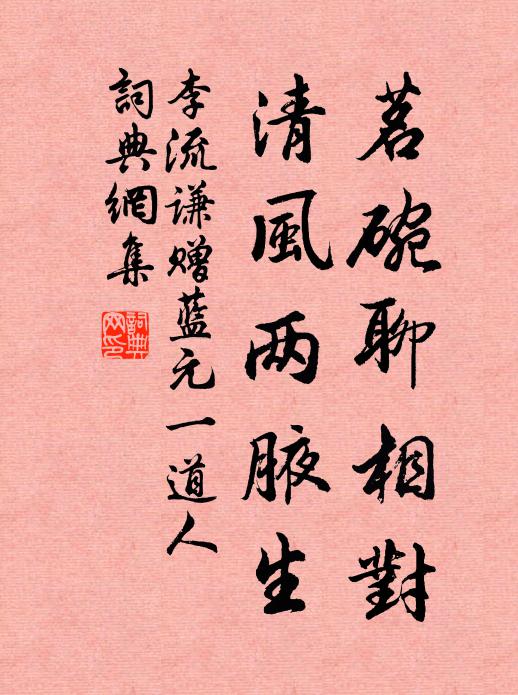 茗碗聊相對
清風两腋生
李流谦赠藍元一道人
詞典網集
詞典
网印